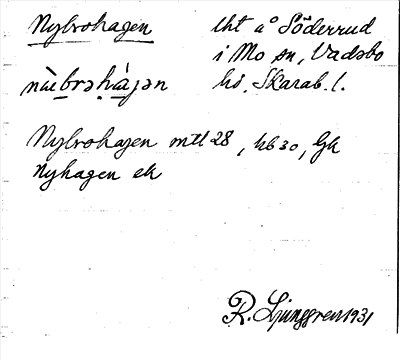 Nybrohagen
lht å Söderrud
i Mo sn, Vadsbo
hd, Skarab. l.
nỳbrəhàgən
Nybrohagen mtl 28, hb 30, Gk
Nyhagen ek
R. Ljunggren 1931